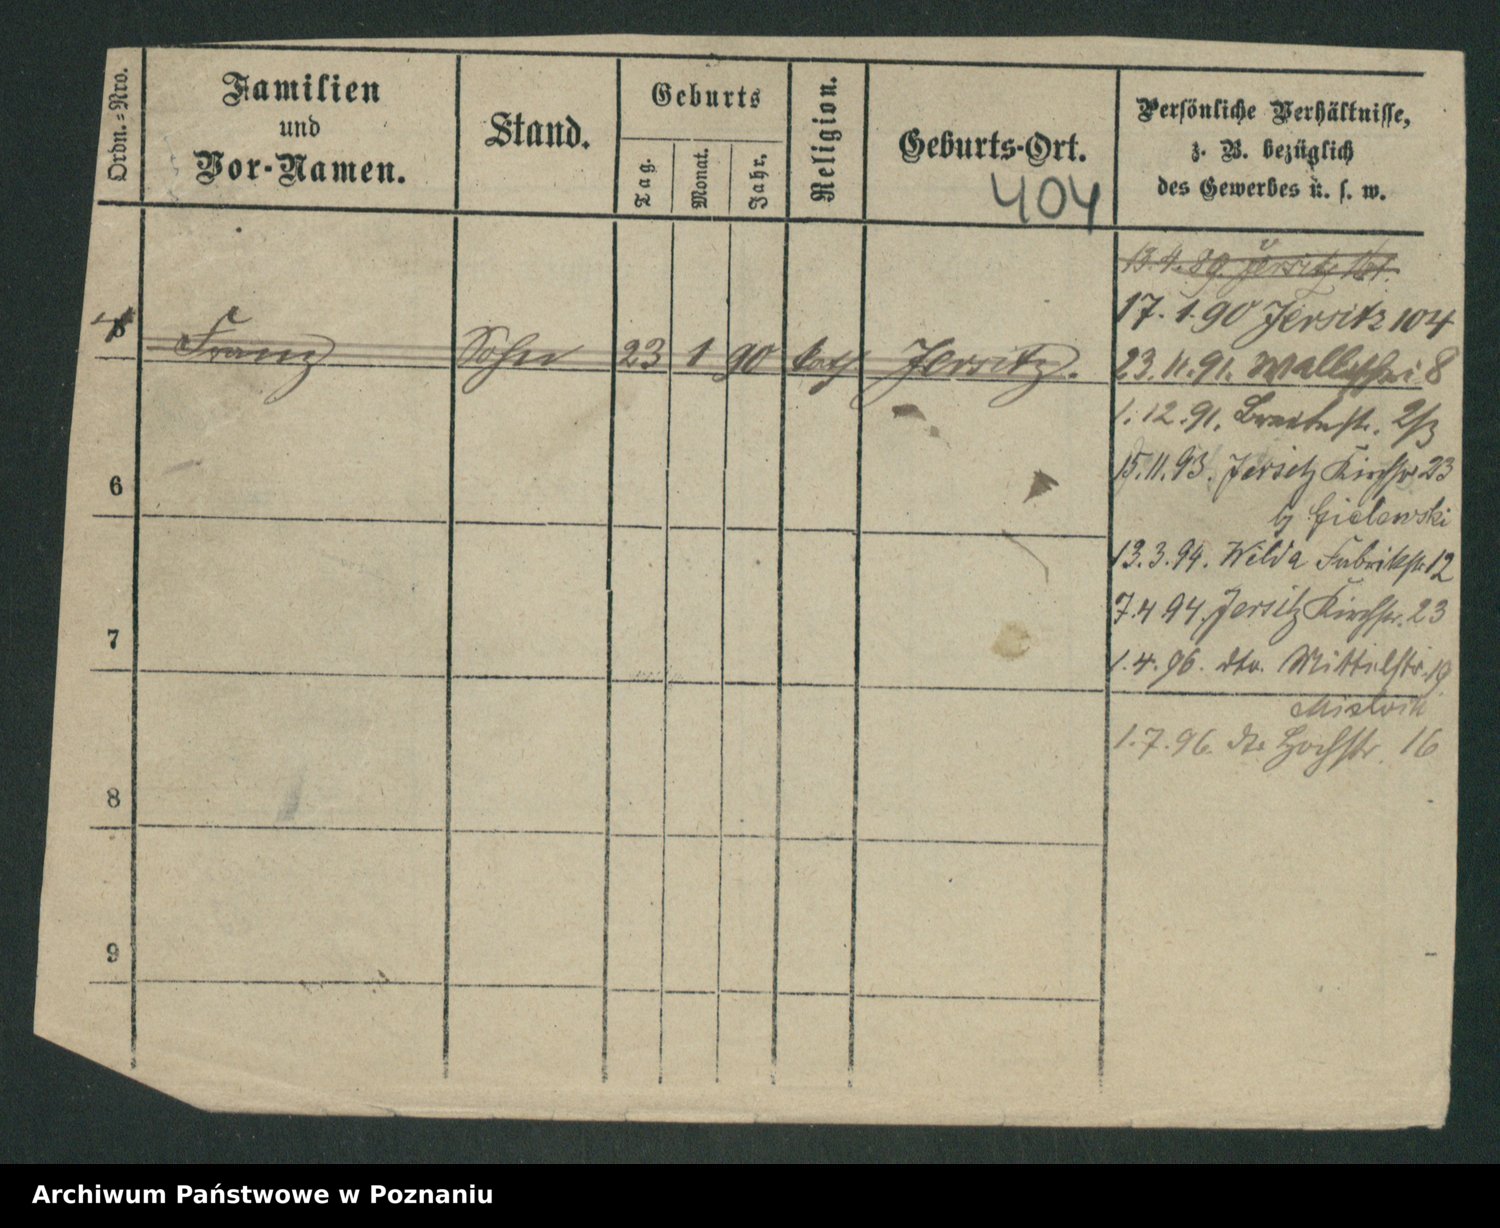 Ordn.=Nro.
Familien
und
Vor-Namen.
Stand.
Geburts
Tag.
Monat.
Jahr.
Religion.
Geburts-Ort.
404
Persönliche Verhältnisse,
z. B. bezüglich
des Gewerbes u. s. w.
13.4.89 Jersitz
17.1.90 Jersitz 104
Franz Sohn 23 1 90 kath Jersitz.
23.11.91. Wallischei 8
1.12.91. Breitestr.
15.11.93. Jersitz Kirchstr 23
6
b/ Gielewski
13.3.94. Wilda Fabrikstr 12
7.4.94. Jersitz Kirchstr. 23
7
1.4.96. dto. Mittelstr. 19
1.7.96. dto Hochstr. 16
8
9
Archiwum Państwowe w Poznaniu